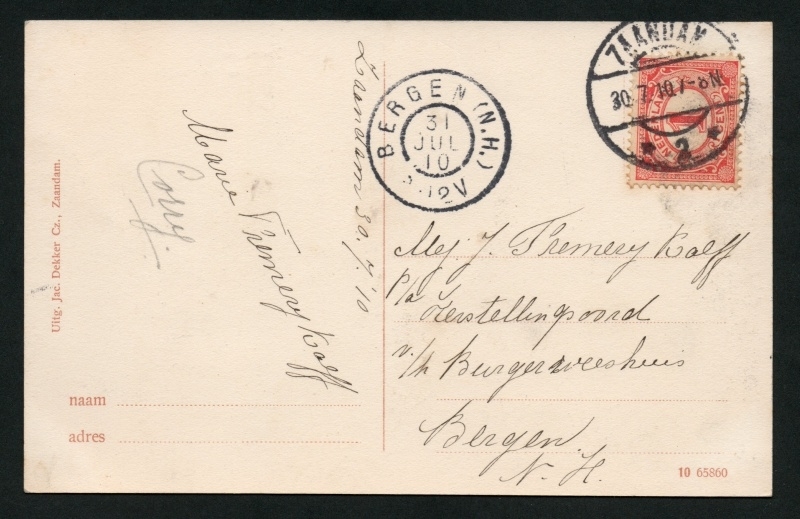 Uitg. Jac. Dekker Cz., Zaandam.
naam
adres
Corry.
Marie Tremery Kolff
Zaandam 30.7.'10
BERGEN (N.H.)
31
JUL
10
-12V
ZAANDAM
30.7.10.7-8N
2
NEDERLAND
1
Mej J. Tremery Kolff
p/a
Herstellingsoord
v/h Burgerweeshuis
Bergen.
N. H.
10 65860